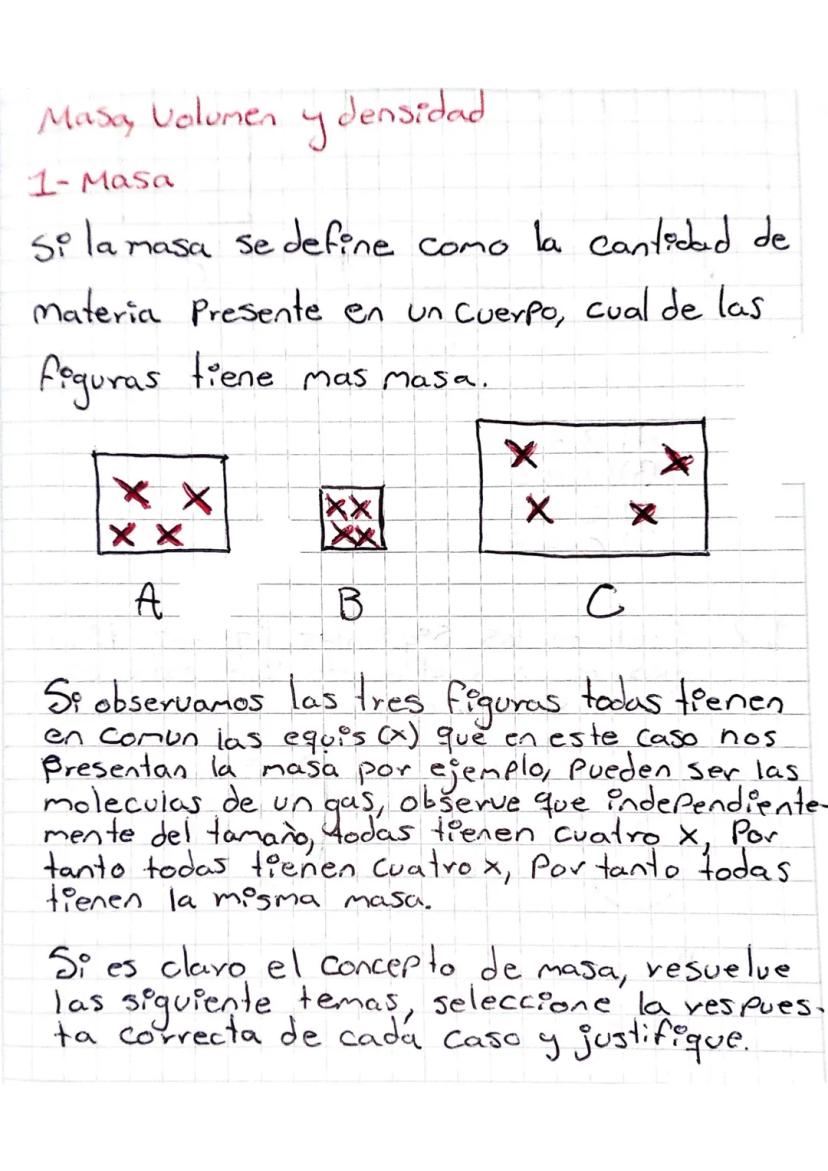 Masa, Volumen y densidad
1- Masa
Si la masa se define como la cantidad de
materia Presente en un Cuerpo, cual de las
figuras tiene mas masa.
A B C
Si observamos las tres figuras todas tienen
en comun las equis (x) que en este caso nos
Presentan la masa por ejemplo, Pueden ser las
moleculas de un gas, observe que independiente-
mente del tamaño, todas tienen cuatro x, Por
tanto todas tienen cuatro x, Por tanto todas
tienen la misma masa.
Si es claro el concepto de masa, resuelve
las siguiente temas, seleccione la respues-
ta correcta de cada caso y justifique.